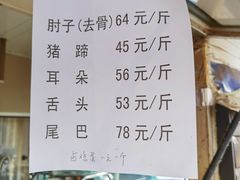 肘子(去骨)64元/斤
猪 蹄 45元/斤
耳 朵 56元/斤
舌 头 53元/斤
尾 巴 78元/斤